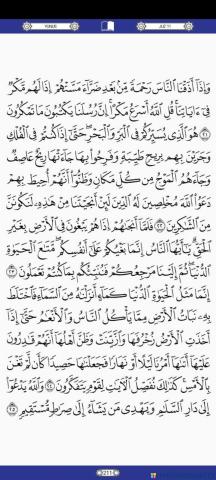 YUNUS
JUZ 11
وَإِذَآ أَذَقْنَا ٱلنَّاسَ رَحْمَةً مِّنۢ بَعْدِ ضَرَّآءَ مَسَّتْهُمْ إِذَا لَهُم مَّكْرٌ
فِىٓ ءَايَاتِنَا ۚ قُلِ ٱللَّهُ أَسْرَعُ مَكْرًا ۚ إِنَّ رُسُلَنَا يَكْتُبُونَ مَا تَمْكُرُونَ
٢١ هُوَ ٱلَّذِى يُسَيِّرُكُمْ فِى ٱلْبَرِّ وَٱلْبَحْرِ ۖ حَتَّىٰٓ إِذَا كُنتُمْ فِى ٱلْفُلْكِ
وَجَرَيْنَ بِهِم بِرِيحٍ طَيِّبَةٍ وَفَرِحُوا۟ بِهَا جَآءَتْهَا رِيحٌ عَاصِفٌ
وَجَآءَهُمُ ٱلْمَوْجُ مِن كُلِّ مَكَانٍ وَظَنُّوٓا۟ أَنَّهُمْ أُحِيطَ بِهِمْ ۙ
دَعَوُا۟ ٱللَّهَ مُخْلِصِينَ لَهُ ٱلدِّينَ لَئِنْ أَنجَيْتَنَا مِنْ هَٰذِهِۦ لَنَكُونَنَّ
مِنَ ٱلشَّٰكِرِينَ ٢٢ فَلَمَّآ أَنجَىٰهُمْ إِذَا هُمْ يَبْغُونَ فِى ٱلْأَرْضِ بِغَيْرِ
ٱلْحَقِّ ۗ يَٰٓأَيُّهَا ٱلنَّاسُ إِنَّمَا بَغْيُكُمْ عَلَىٰٓ أَنفُسِكُم ۖ مَّتَٰعَ ٱلْحَيَوٰةِ
ٱلدُّنْيَا ۖ ثُمَّ إِلَيْنَا مَرْجِعُكُمْ فَنُنَبِّئُكُم بِمَا كُنتُمْ تَعْمَلُونَ ٢٣
إِنَّمَا مَثَلُ ٱلْحَيَوٰةِ ٱلدُّنْيَا كَمَآءٍ أَنزَلْنَٰهُ مِنَ ٱلسَّمَآءِ فَٱخْتَلَطَ
بِهِۦ نَبَاتُ ٱلْأَرْضِ مِمَّا يَأْكُلُ ٱلنَّاسُ وَٱلْأَنْعَٰمُ حَتَّىٰٓ إِذَآ
أَخَذَتِ ٱلْأَرْضُ زُخْرُفَهَا وَٱزَّيَّنَتْ وَظَنَّ أَهْلُهَآ أَنَّهُمْ قَٰدِرُونَ
عَلَيْهَآ أَتَىٰهَآ أَمْرُنَا لَيْلًا أَوْ نَهَارًا فَجَعَلْنَٰهَا حَصِيدًا كَأَن لَّمْ تَغْنَ
بِٱلْأَمْسِ ۚ كَذَٰلِكَ نُفَصِّلُ ٱلْءَايَٰتِ لِقَوْمٍ يَتَفَكَّرُونَ ٢٤ وَٱللَّهُ يَدْعُوٓا۟
إِلَىٰ دَارِ ٱلسَّلَٰمِ وَيَهْدِى مَن يَشَآءُ إِلَىٰ صِرَٰطٍ مُّسْتَقِيمٍ ٢٥
211